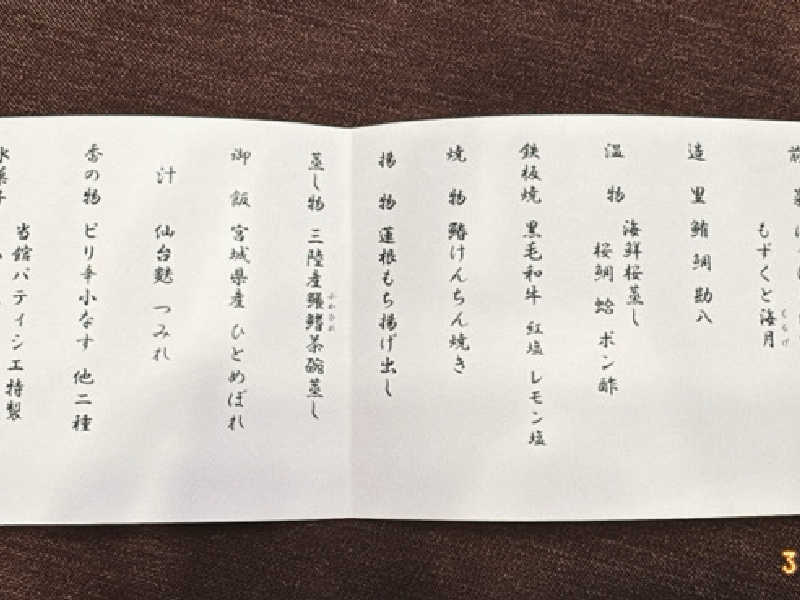 前菜
もずくと海月
くらげ
造里 鮪 鯛 勘八
温物 海鮮桜蒸し
桜鯛 蛤 ポン酢
鉄板焼 黒毛和牛 紅塩 レモン塩
焼物 鰆けんちん焼き
揚物 蓮根もち揚げ出し
蒸し物 三陸産鱶鰭茶碗蒸し
ふかひれ
御飯 宮城県産 ひとめぼれ
汁 仙台麩 つみれ
香の物 ピリ辛小なす 他二種
水菓子
当館パティシエ特製
3